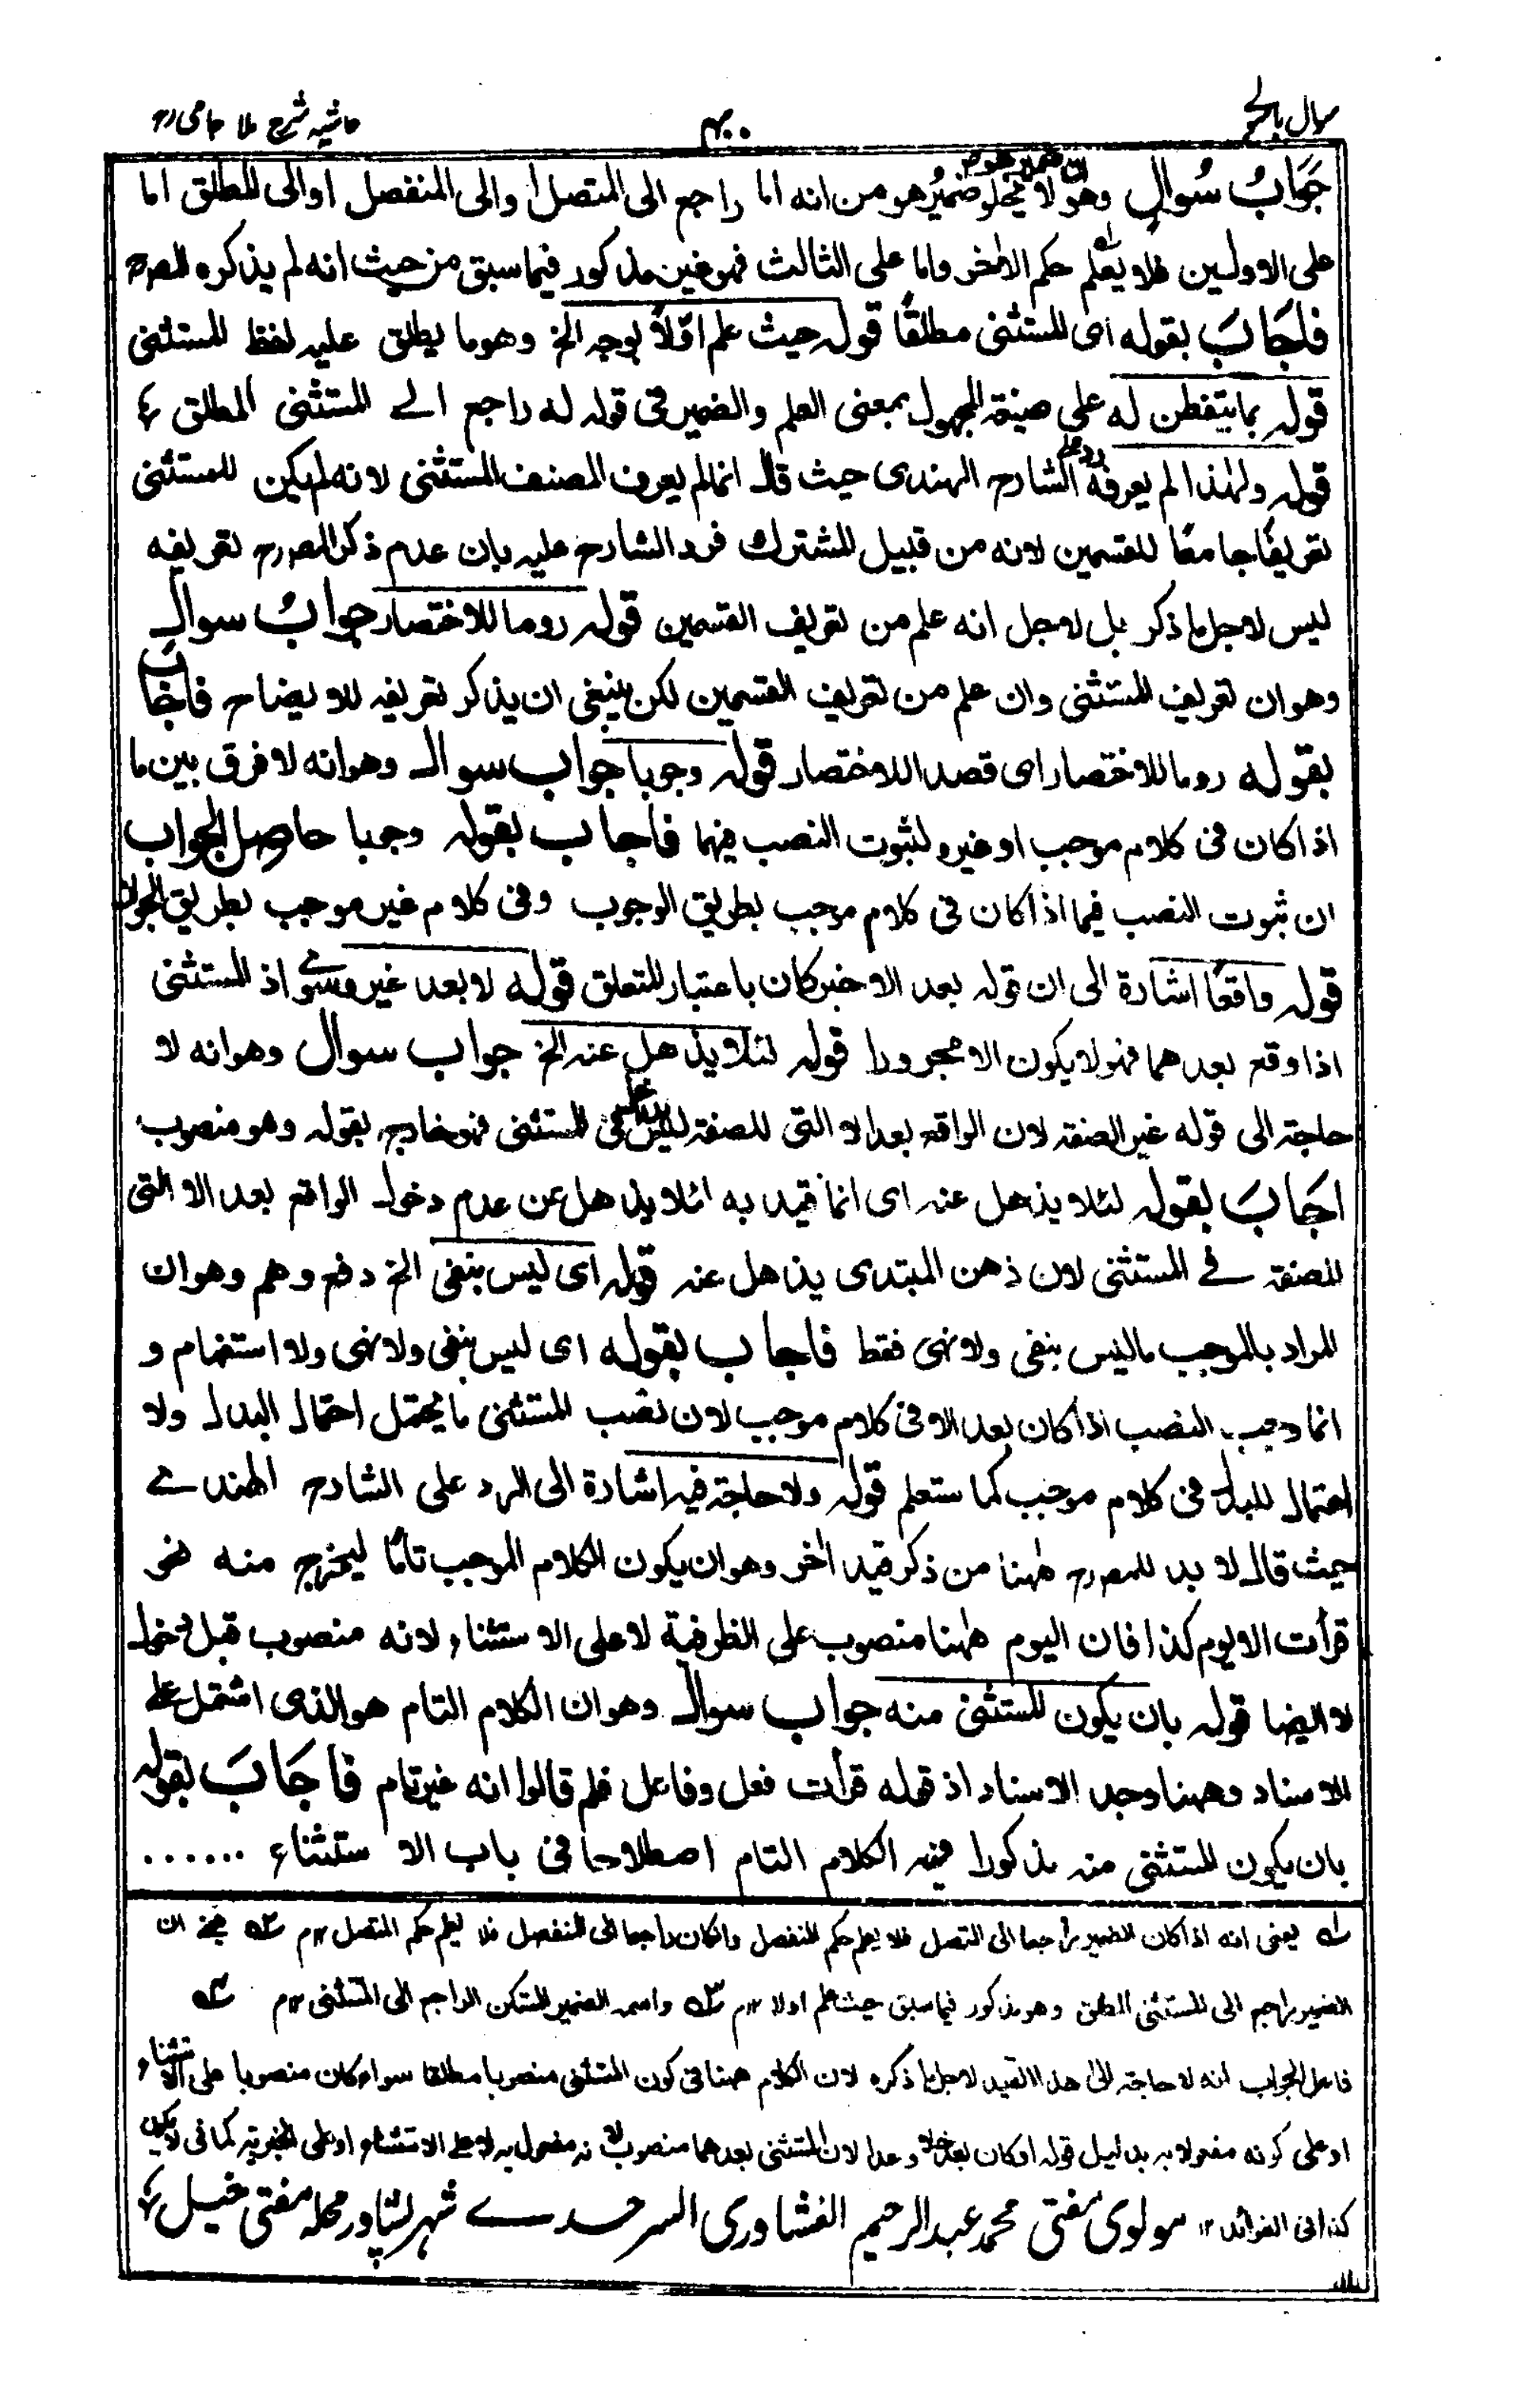 سوال باسولی ۴۰ حاشیه شرح ملا جامی رح
جَوَابُ سُوالٍ وهو لا يخلو ضمير هو من انه اما راجع الى المتصل او الى المنفصل او الى المطلق اما
على الاولين فلا يعلم حكم الاخر واما على الثالث فهو غير مذكور فيما سبق من حيث انه لم يذكره المصرح
فاجَابَ بقوله اى المستثنى مطلقًا قوله حيث علم اوّلًا بوجه الخ وهو ما يطلق عليه لفظ المستثنى
قوله بما يتفطن له على صيغة المجهول بمعنى العلم والضمير فى قوله له راجع الى المستثنى المطلق ؏
قوله ولهذا لم يعرفه رد على الشارح الهندى حيث قال انما لم يعرف المصنف المستثنى لانه لم يكن للمستثنى
تعريفًا جامعًا للقسمين لانه من قبيل المشترك فرد الشارح عليه بان عدم ذكر المصرح تعريفه
ليس لاجل ما ذكر بل لاجل انه علم من تعريف القسمين قوله روما للاختصار جوابُ سوالٍ
وهو ان تعريف المستثنى وان علم من تعريف القسمين لكن ينبغى ان يذكر تعريفه للايضاح فاجاب
بقوله روما للاختصار اى قصدا للاختصار قوله وجوبا جواب سوال وهو انه لا فرق بين ما
اذا كان فى كلام موجب او غيره لثبوت النصب فيهما فاجاب بقوله وجوبا حاصل الجواب
ان ثبوت النصب فيما اذا كان فى كلام موجب بطريق الوجوب وفى كلام غير موجب بطريق الجواز
قوله واقعًا اشارة الى ان قوله بعد الا خبر كان باعتبار المتعلق قوله لا بعد غير وسوى اذ المستثنى
اذا وقع بعدهما فهو لا يكون الا مجرورا قوله لئلا يذهل عنه الخ جواب سوال وهو انه لا
حاجة الى قوله غير الصفة لان الواقع بعد الا التى للصفة ليس فى المستثنى فهو خارج بقوله وهو منصوب
اجَابَ بقوله لئلا يذهل عنه اى انما قيد به لئلا يذهل عن عدم دخول الواقع بعد الا التى
للصفة فى المستثنى لان ذهن المبتدى يذهل عنه قوله اى ليس بنفى الخ دفع وهم وهو ان
المراد بالموجب ما ليس بنفى ولا نهى فقط فاجاب بقوله اى ليس بنفى ولا نهى ولا استفهام و
انما وجب النصب اذا كان بعد الا فى كلام موجب لان نصب المستثنى ما يحتمل احتمال البدل ولا
احتمال للبدل فى كلام موجب كما ستعلم قوله ولا حاجة فيه اشارة الى الرد على الشارح الهندى
حيث قال لا بد للمصرح ههنا من ذكر قيد اخر وهو ان يكون الكلام الموجب تامًا ليخرج منه نحو
قرأت الا يوم كذا فان اليوم ههنا منصوب على الظرفية لا على الاستثناء لانه منصوب قبل دخول
لا ايضا قوله بان يكون المستثنى منه جواب سوال وهو ان الكلام التام هو الذى اشتمل على
الاسناد وههنا وجد الاسناد اذ قوله قرأت فعل وفاعل فلم قالوا انه غير تام فاجَابَ بقوله
بان يكون المستثنى منه مذكورا فيه الكلام التام اصطلاحا فى باب الاستثناء ......
له يعنى انه اذا كان الضمير راجعا الى المتصل فلا يعلم حكم المنفصل وان كان راجعا الى المنفصل فلا يعلم حكم المتصل ١٢م ٢ه يعنى ان
الضمير راجع الى المستثنى المطلق وهو مذكور فيما سبق حيث علم اولا ١٢م ٣ه واسمه الضمير المستكن الراجع الى المستثنى ١٢م ٤ه
حاصل الجواب انه لا حاجة الى هذا القيد لاجل ما ذكره لان الكلام ههنا فى كون المستثنى منصوبا مطلقا سواء كان منصوبا على الاستثناء
او على كونه مفعولا به بدليل قوله او كان بعد خلا وعدا لان المستثنى بعدهما منصوب لانه مفعول به لا على الاستثناء او على الخبرية كما فى لا يكون
كذا فى الفوائد ١٢ مولوى مفتى محمد عبد الرحيم الفشاورى السرحدے شهر پشاور محله مفتى خيل ؏